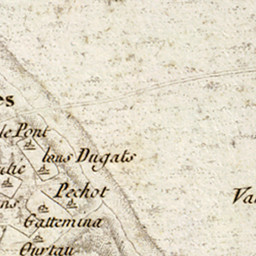 es
le Pont
lans Dugats
lié
Pechot
Va
ns
Gattemina
Ourtau